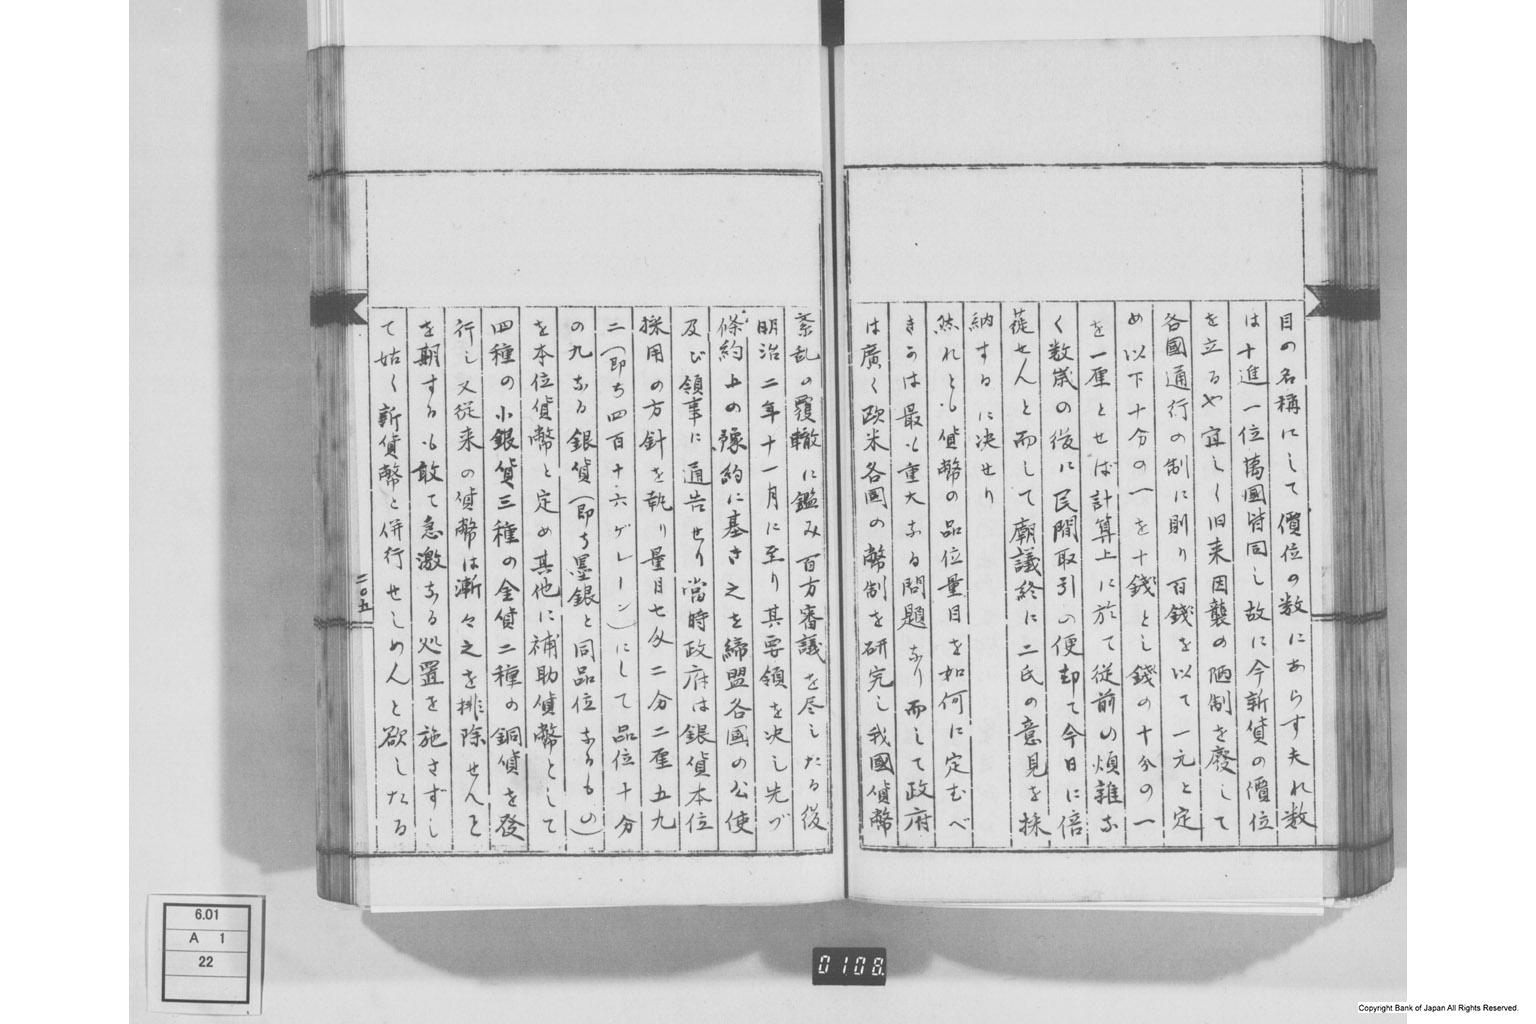 目の名稱にして價位の数にあらす夫れ数
は十進一位萬國皆同し故に今新貨の價位
を立るや宜しく旧来因襲の陋制を廢して
各國通行の制に則り百錢を以て一元と定
め以下十分の一を十錢とし錢の十分の一
を一厘とせば計算上に於て従前の煩雑な
く数歳の後に民間取引の便却て今日に倍
蓰せんと而して廟議終に二氏の意見を採
納するに決せり
然れとも貨幣の品位量目を如何に定むべ
きかは最も重大なる問題なり而して政府
は廣く欧米各国の幣制を研究し我國貨幣
紊乱の覆轍に鑑み百方審議を尽したる後
明治二年十一月に至り其要領を决し先づ
條約上の豫約に基き之を締盟各国の公使
及び領事に通告せり當時政府は銀貨本位
採用の方針を執り量目七匁二分二厘五九
二(即ち四百十六ゲレーン)にして品位十分
の九なる銀貨(即ち墨銀と同品位なるもの)
を本位貨幣と定め其他に補助貨幣として
四種の小銀貨三種の金貨二種の銅貨を發
行し又従来の貨幣は漸々之を排除せんと
を期するも敢て急激なる処置を施さずし
て姑く新貨幣と併行せしめんと欲したる
二〇五
6.01
A 1
22
0108
Copyright Bank of Japan All Rights Reserved.